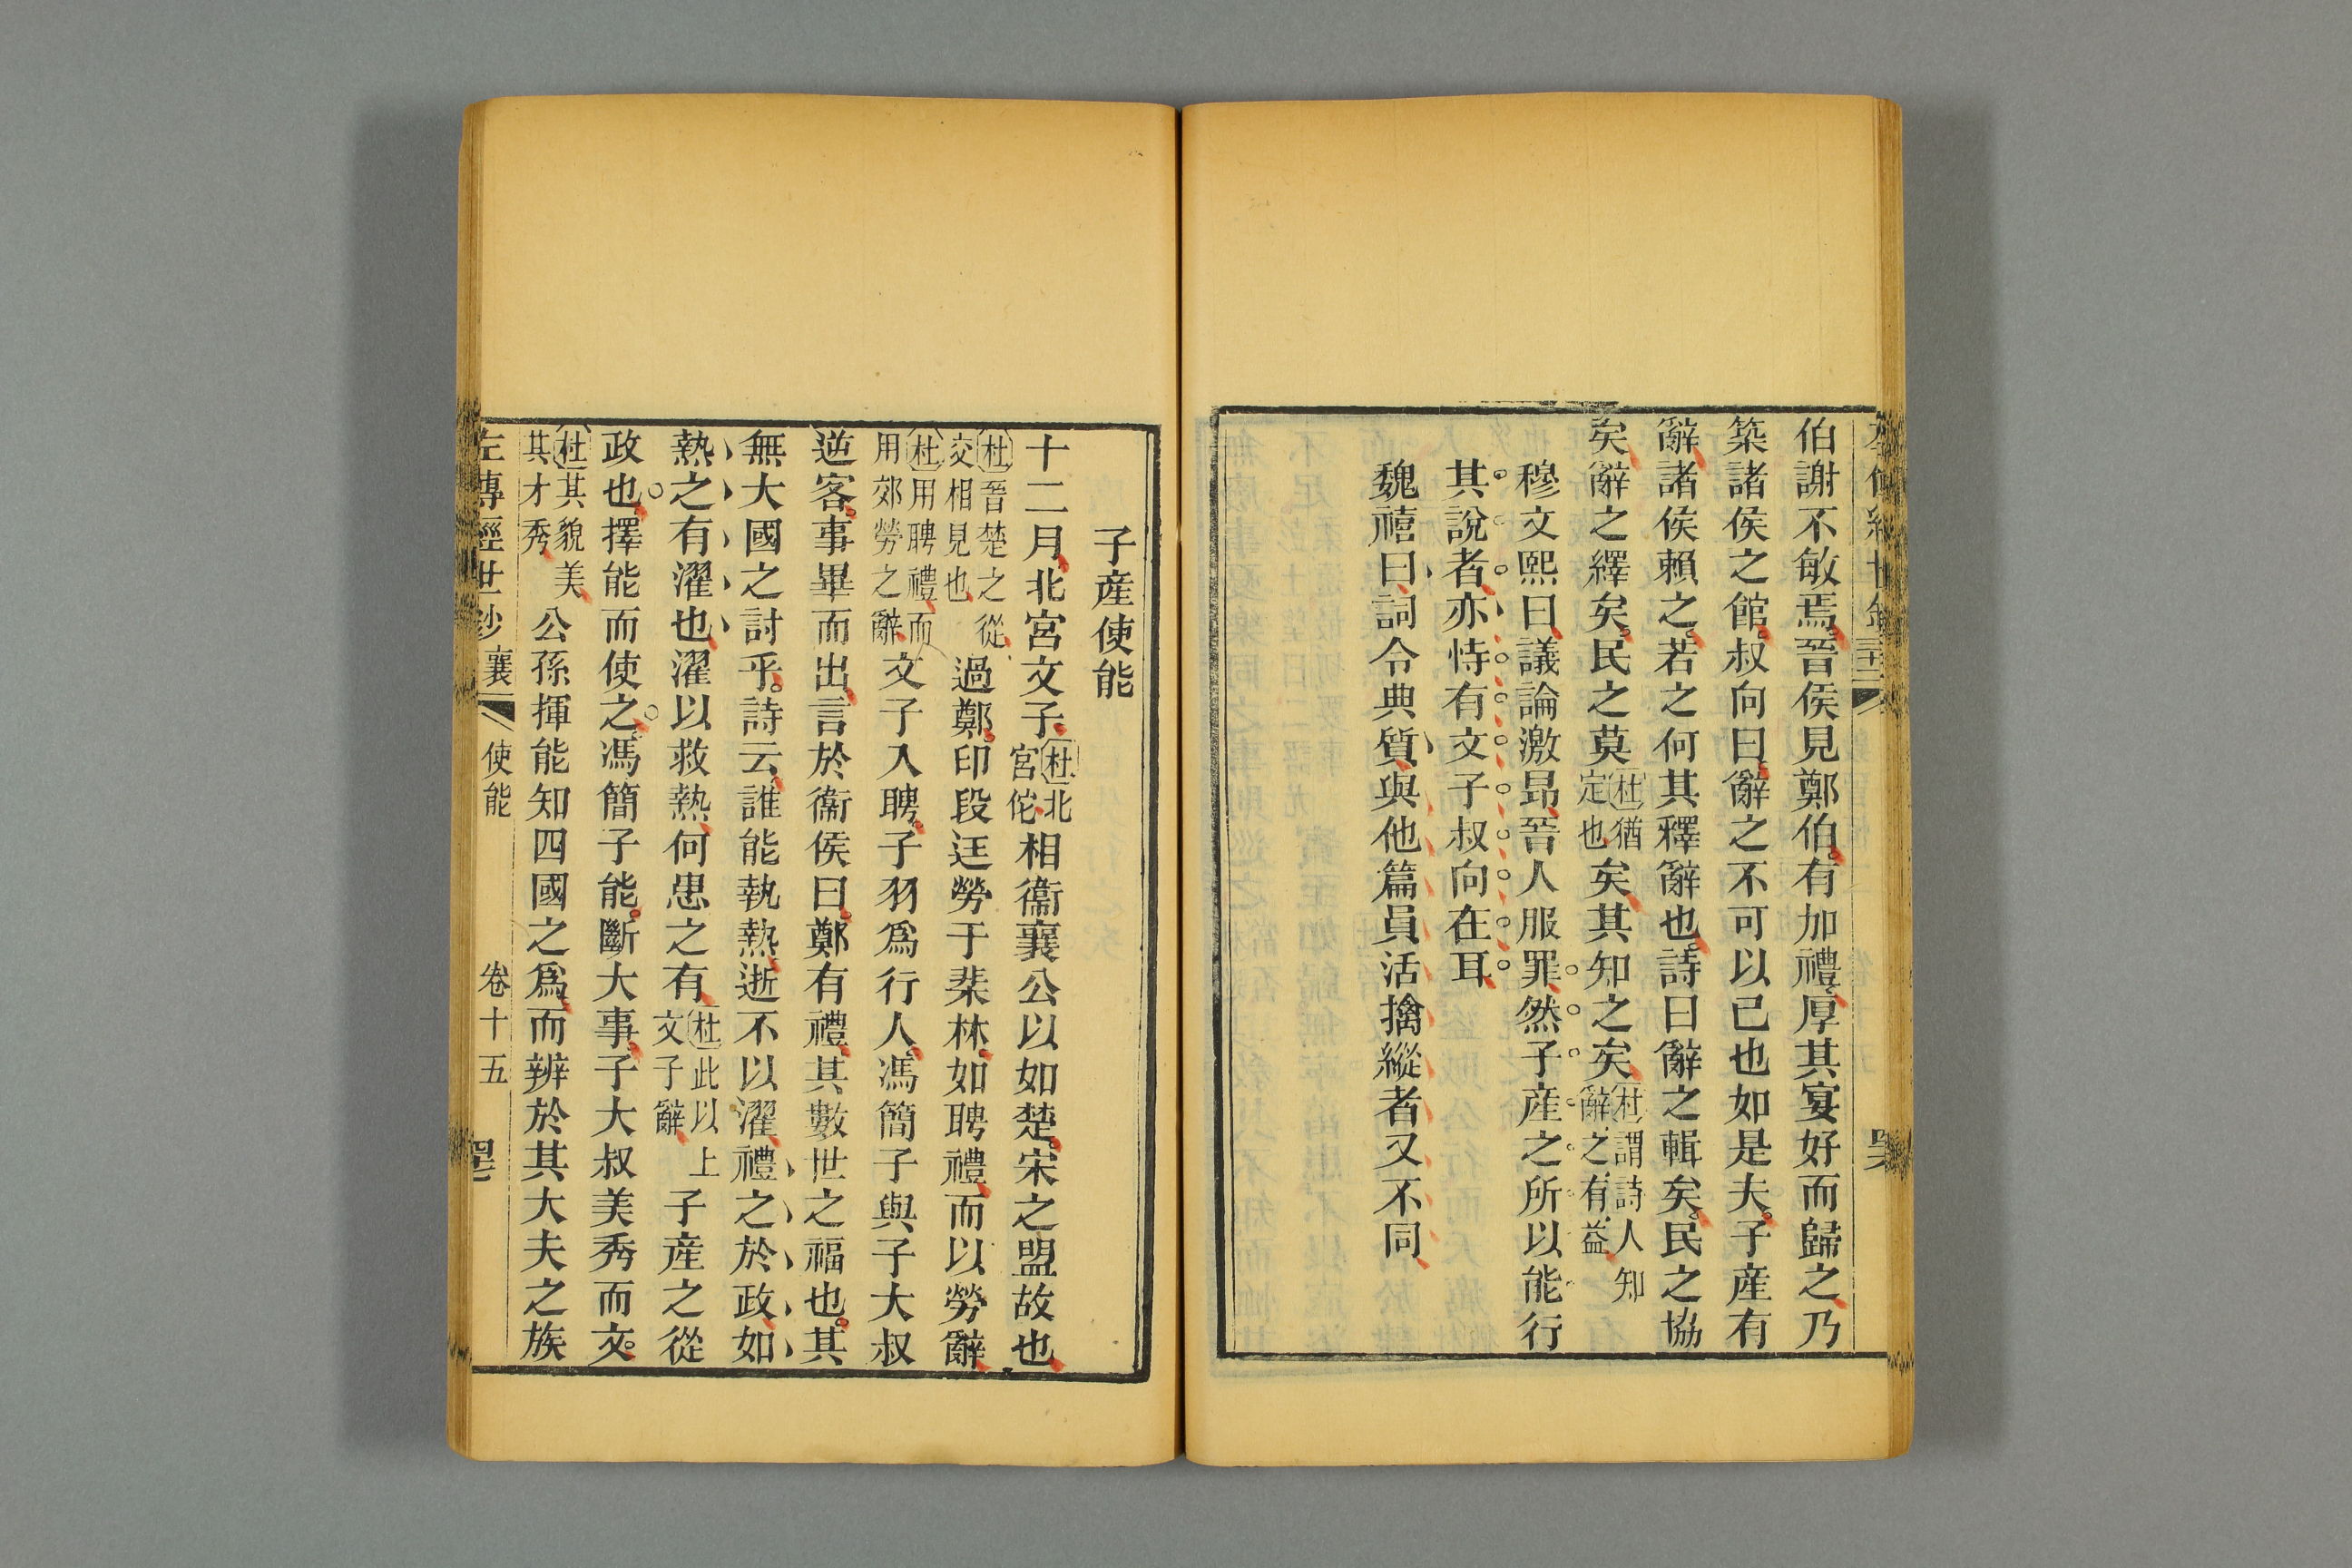 伯謝不敏焉晉侯見鄭伯有加禮厚其宴好而歸之乃
築諸侯之館叔向曰辭之不可以已也如是夫子產有
辭諸侯賴之若之何其釋辭也詩曰辭之輯矣民之協
矣辭之繹矣民之莫杜猶定也矣其知之矣杜謂詩人知辭之有益
穆文熙曰議論激昂晉人服罪然子產之所以能行
其說者亦恃有文子叔向在耳
魏禧曰詞令典質與他篇員活擒縱者又不同
子產使能
十二月北宮文子杜北宮佗相衞襄公以如楚宋之盟故也
杜晉楚之從交相見也過鄭印段迋勞于棐林如聘禮而以勞辭
杜用聘禮而用郊勞之辭文子入聘子羽爲行人馮簡子與子大叔
逆客事畢而出言於衞侯曰鄭有禮其數世之福也其
無大國之討乎詩云誰能執熱逝不以濯禮之於政如
熱之有濯也濯以救熱何患之有杜此以上文子辭子產之從
政也擇能而使之馮簡子能斷大事子大叔美秀而文
杜其貌美其才秀公孫揮能知四國之爲而辨於其大夫之族
左傳經世鈔 襄 使能 卷十五